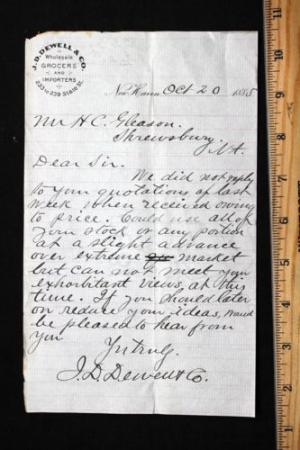 J. D. DEWELL & CO.
Wholesale
GROCERS
AND
IMPORTERS
233 to 239 STATE ST.
New Haven Oct 20 1885
Mr H C. Gleason.
Shrewsbury, Vt.
Dear Sir.
We did not reply
to your quotations of last
week when received owing
to price. Could use all of
your stock or any portion
at a slight advance
over extreme market
but can not meet your
exhorbitant views, at this
time. If you should later
on reduce your ideas, would
be pleased to hear from
you
Yr truly,
J. D. Dewell & Co.
1
2
3
4
5
6
7
8
9
10
11